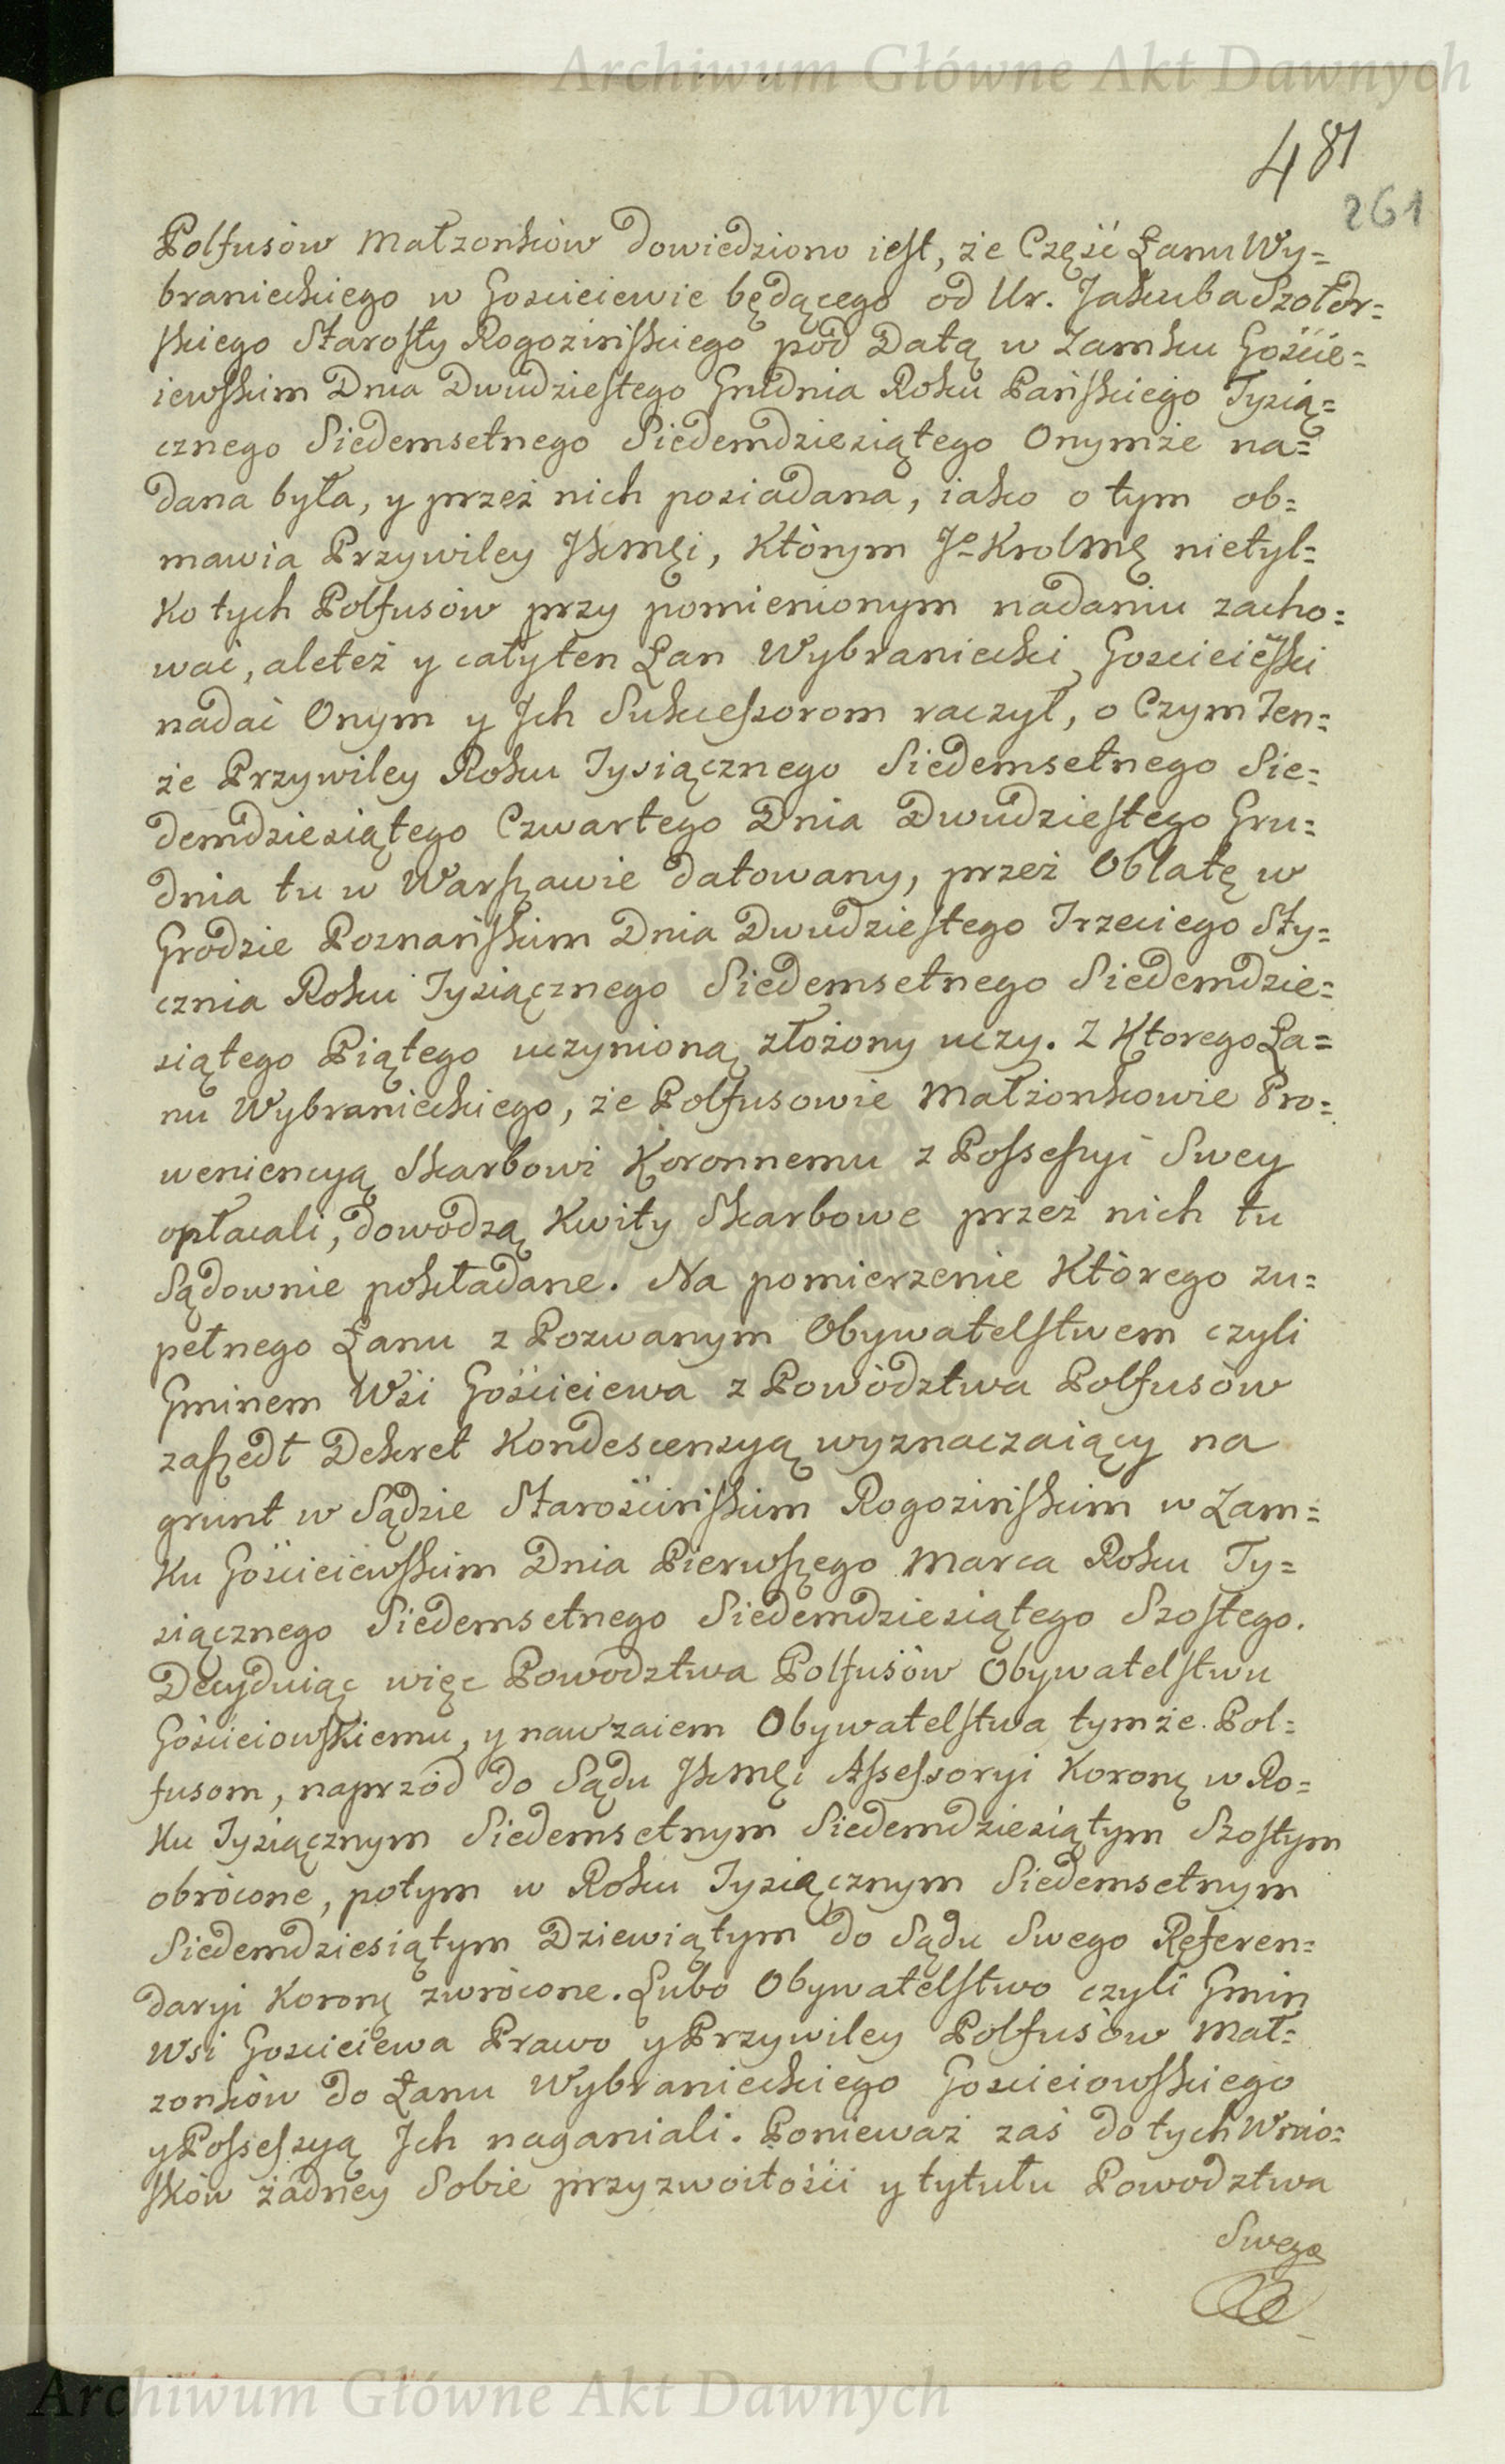 Archiwum Główne Akt Dawnych
481
261
Polfusów Małzonków dowiedziono iest, że Część Łanu Wy=
branieckiego w Gosciciewie będącego od Ur. Jakuba Szołdr=
skiego Starosty Rogozińskiego pod Datą w Zamku Goście=
iewskim Dnia Dwudziestego Grudnia Roku Pańskiego Tysią=
cznego Siedemsetnego Siedemdziesiątego Onymże na=
dana była, y przez nich posiadana, iako o tym ob=
mawia Przywiley JKMęi, Którym Jo KrolMę nietyl=
ko tych Polfusów przy pomienionym nadaniu zacho=
wać, aleteż y całyten Łan Wybraniecki Gosciciewski
nadać Onym y Jch Sukcessorom raczył, o Czym Ten=
że Przywiley Roku Tysiącznego Siedemsetnego Sie=
demdziesiątego Czwartego Dnia Dwudziestego Gru=
dnia tu w Warszawie datowany, przez Oblatę w
Grodzie Poznańskim Dnia Dwudziestego Trzeciego Sty=
cznia Roku Tysiącznego Siedemsetnego Siedemdzie=
siątego Piątego uczynioną złożony uczy. Z Ktorego Ła=
nu Wybranieckiego, że Polfusowie Małżonkowie Pro=
weniencyą Skarbowi Koronnemu z Possessyi Swey
opłacali, dowodzą Kwity Skarbowe przez nich tu
Sądownie pokładane. Na pomierzenie Którego zu=
pełnego Łanu z Pozwanym Obywatelstwem czyli
Gminem Wsi Gościciewa z Powództwa Polfusów
zaszedł Dekret Kondescensyą wyznaczaiący na
grunt w Sądzie Starościńskim Rogozińskim w Zam=
ku Gościciewskim Dnia Pierwszego Marca Roku Ty=
siącznego Siedemsetnego Siedemdziesiątego Szostego.
Decyduiąc więc Powodztwa Polfusów Obywatelstwu
Gościciowskiemu, y nawzaiem Obywatelstwa tymże Pol=
fusom, naprzód do Sądu JKMęi Assessoryi Koronę w Ro=
ku Tysiącznym Siedemsetnym Siedemdziesiątym Szostym
obrócone, potym w Roku Tysiącznym Siedemsetnym
Siedemdziesiątym Dziewiątym do Sądu Swego Referen=
daryi Koronę zwrócone. Lubo Obywatelstwo czyli Gmin
Wsi Gosciciewa Prawo y Przywiley Polfusów Mał=
zonków do Łanu Wybranieckiego Gosciciowskiego
y Possessyą Jch naganiali. Ponieważ zaś do tych Wnio=
sków żadney Sobie przyzwoitości y tytułu Powodztwa
Swego
Archiwum Główne Akt Dawnych